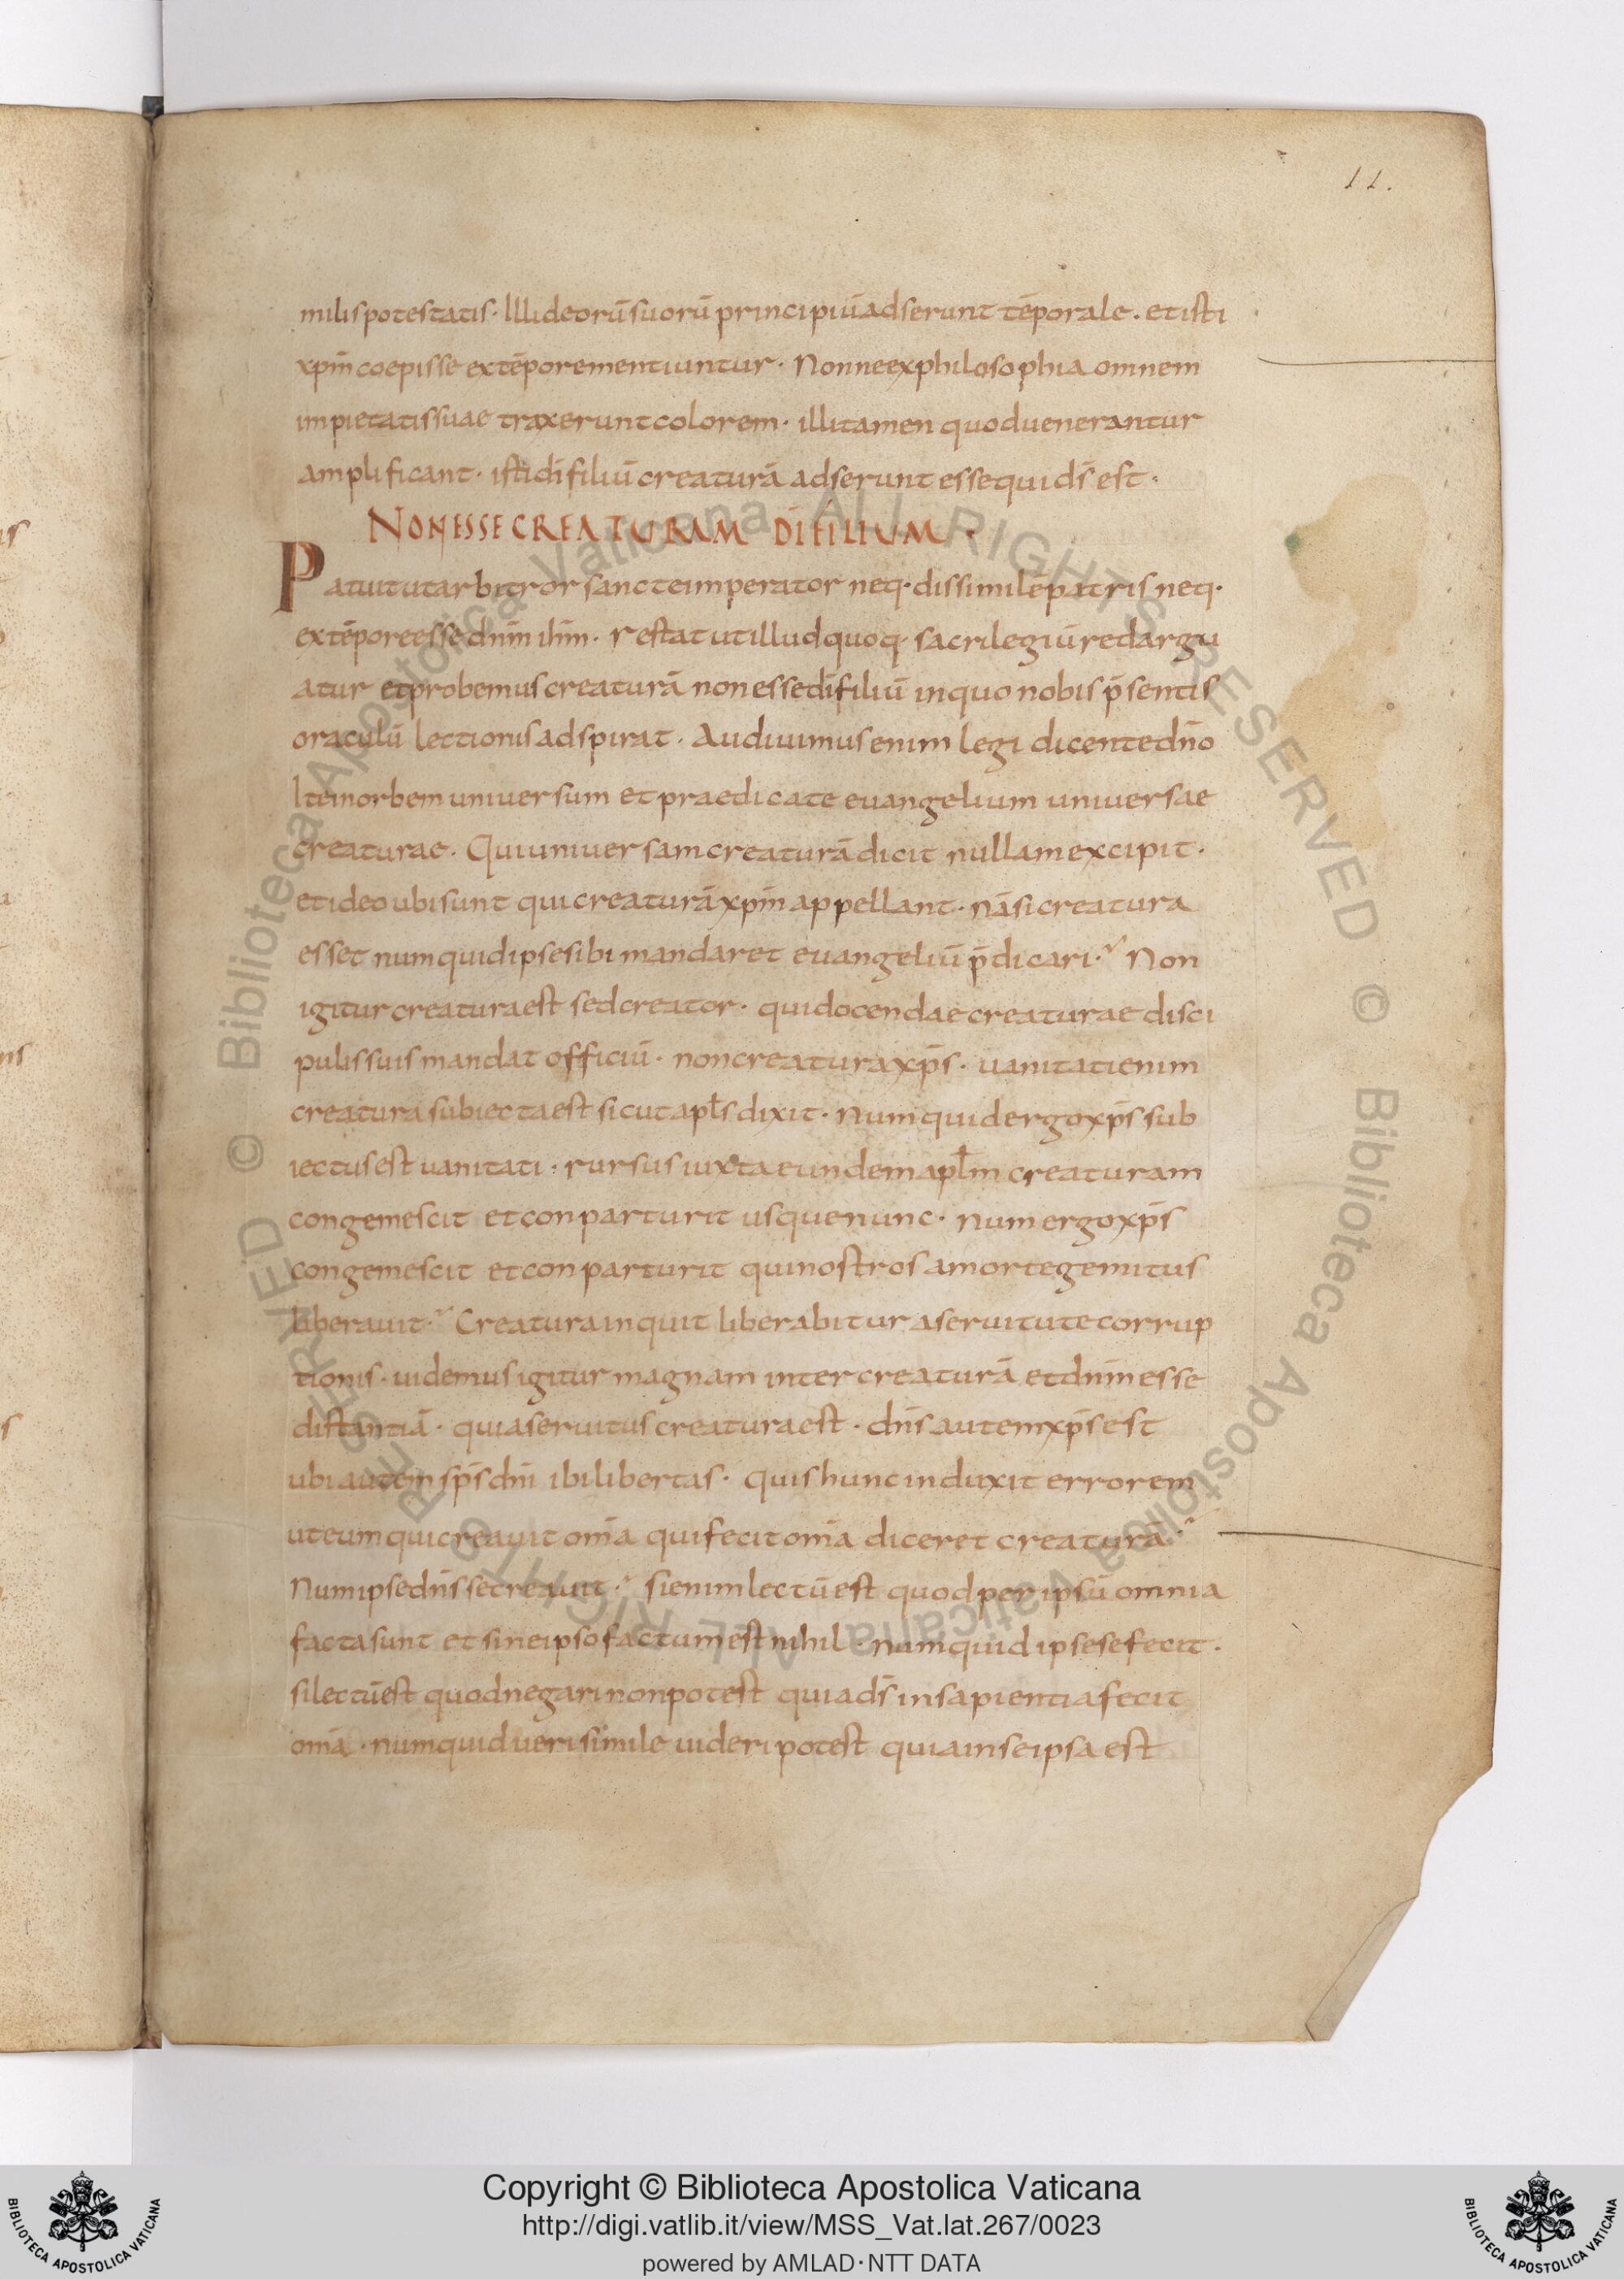 11.
milis potestatis · Illi deorū suorū principiū adserunt tēporale . et isti
xp̄m coepisse ex tēpore mentiuntur · Nonne ex philosophia omnem
impietatis suae traxerunt colorem · illi tamen quod uenerantur
amplificant · isti dī filiū creaturā adserunt esse qui d̄s est ·
NON ESSE CREATURAM DĪ FILIUM .
Patuit ut arbitror sancte imperator neq· dissimilē patris neq·
ex tēpore esse dn̄m ih̄m · restat ut illud quoq· sacrilegiū redargu
atur et probemus creaturā non esse dī filiū in quo nobis p̄sentis
oraculū lectionis adspirat · Audiuimus enim legi dicente dn̄o
Ite in orbem uniuersum et praedicate euangelium uniuersae
creaturae · Qui uniuersam creaturā dicit nullam excipit ·
et ideo ubi sunt qui creaturā xp̄m appellant · nā si creatura
esset numquid ipse sibi mandaret euangeliū p̄dicari ·? Non
igitur creatura est sed creator · qui docendae creaturae disci
pulis suis mandat officiū · non creatura xp̄s · uanitati enim
creatura subiecta est sicut apl̄s dixit · Numquid ergo xp̄s sub
iectus est uanitati · rursus iuxta eundem apl̄m creaturam
congemescit et conparturit usque nunc · Num ergo xp̄s
congemescit et conparturit qui nostros a morte gemitus
liberauit ·? Creatura inquit liberabitur a seruitute corrup
tionis · uidemus igitur magnam inter creaturā et dn̄m esse
distantiā · quia seruitus creatura est · dn̄s autem xp̄s est
ubi autem sp̄s dn̄i ibi libertas · Quis hunc induxit errorem
ut eum qui creauit om̄a qui fecit om̄a diceret creaturā ·?
Num ipse dn̄s se creauit ·? si enim lectū est quod per ipsū omnia
facta sunt et sine ipso factum est nihil · numquid ipse se fecit .
si lectū est quod negari non potest quia d̄s in sapientia fecit
om̄a · numquid ueri simile uideri potest quia in se ipsa est
© Biblioteca Apostolica Vaticana ALL RIGHTS RESERVED
Copyright © Biblioteca Apostolica Vaticana
http://digi.vatlib.it/view/MSS_Vat.lat.267/0023
powered by AMLAD·NTT DATA
BIBLIOTECA APOSTOLICA VATICANA
BIBLIOTECA APOSTOLICA VATICANA